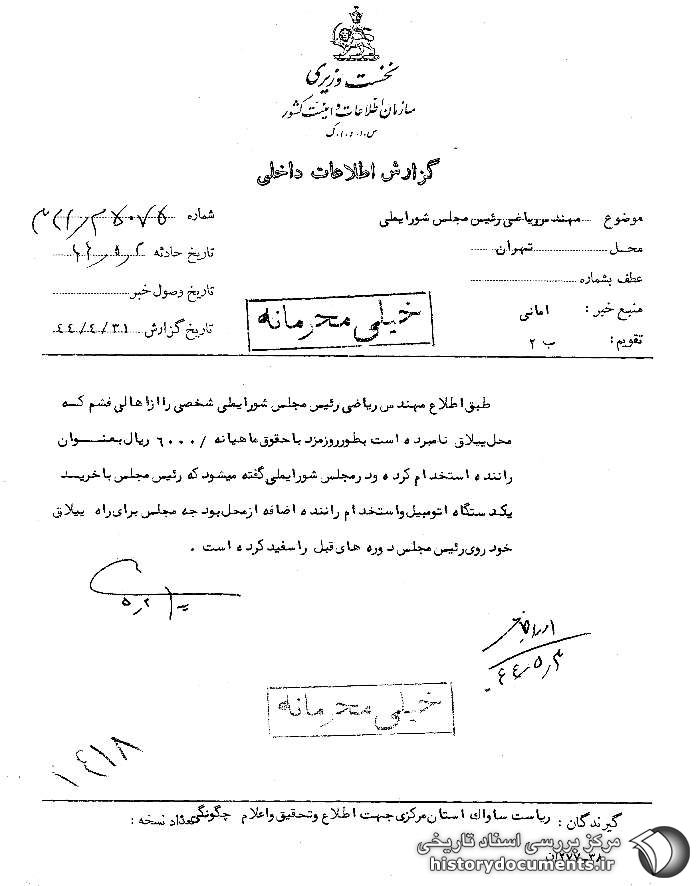 نخست وزیری
سازمان اطلاعات و امنیت کشور
س.ا.و.ا.ک
گزارش اطلاعات داخلی
موضوع مهندس ریاضی رئیس مجلس شورایملی
شماره
محل تهران
تاریخ حادثه
عطف بشماره
تاریخ وصول خبر
منبع خبر: امانی
تاریخ گزارش ۴۴/۴/۳۱
تقویم: ب ۲
خیلی محرمانه
طبق اطلاع مهندس ریاضی رئیس مجلس شورایملی شخصی را از اهالی فشم که
محل ییلاق نامبرده است بطور روزمزد با حقوق ماهیانه /۶۰۰۰ ریال بعنوان
راننده استخدام کرده و در مجلس شورایملی گفته میشود که رئیس مجلس با خرید
یکدستگاه اتومبیل و استخدام راننده اضافه از محل بودجه مجلس برای راه ییلاق
خود روی رئیس مجلس دوره های قبل را سفید کرده است .
۴۴/۵/۳
خیلی محرمانه
۱۴۱۸
گیرندگان: ریاست ساواک استان مرکزی جهت اطلاع و تحقیق و اعلام چگونگی
تعداد نسخه:
مرکز بررسی اسناد تاریخی
historydocuments.ir